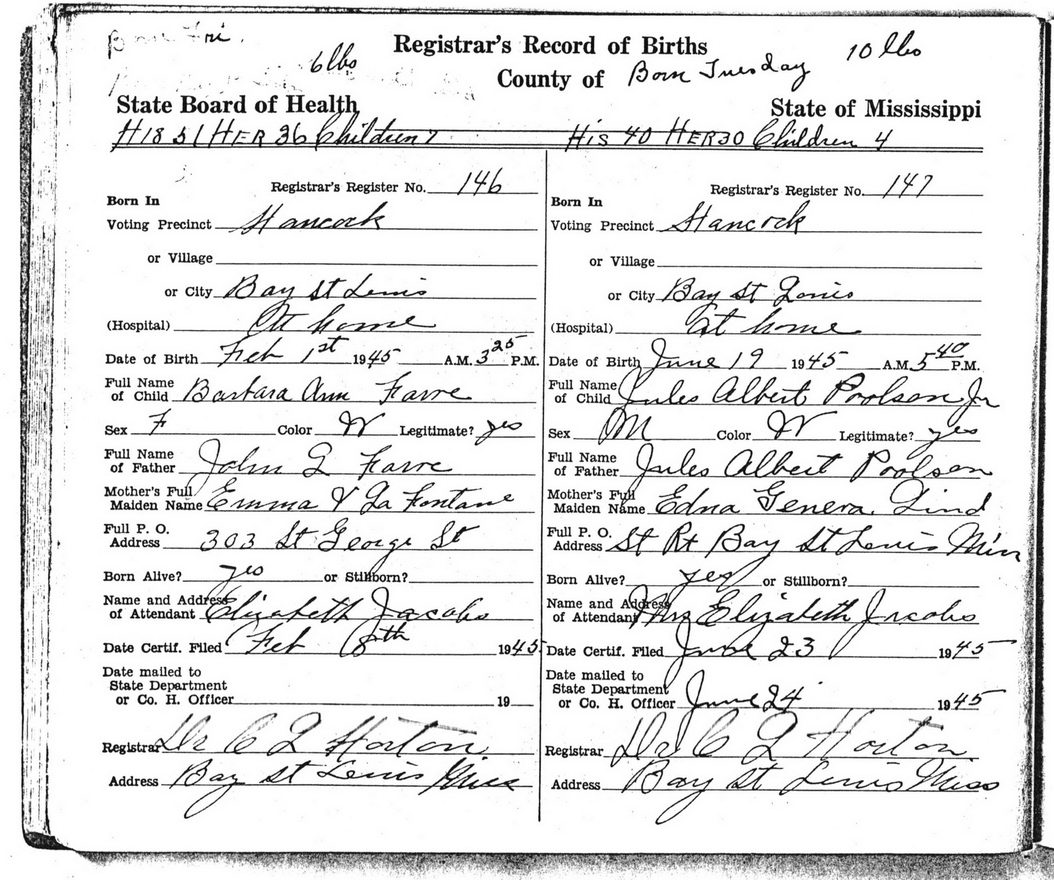 Born Fri.
Registrar's Record of Births
6 lbs
10 lbs
County of Born Tuesday
State Board of Health
State of Mississippi
HIS 51 HER 36 Children 7
HIS 40 HER 30 Children 4
Registrar's Register No. 146
Born In
Voting Precinct Hancock
or Village
or City Bay St Louis
(Hospital) At home
Date of Birth Feb 1st 1945 A.M. 3 25 P.M.
Full Name
of Child Barbara Ann Favre
Sex F Color W Legitimate? yes
Full Name
of Father John L Favre
Mother's Full
Maiden Name Emma V La Fontane
Full P. O.
Address 303 St George St
Born Alive? yes or Stillborn?
Name and Address
of Attendant Elizabeth Jacobs
Date Certif. Filed Feb 8th 1945
Date mailed to
State Department
or Co. H. Officer 19
Registrar Dr C L Horton
Address Bay St Louis Miss
Registrar's Register No. 147
Born In
Voting Precinct Hancock
or Village
or City Bay St Louis
(Hospital) at home
Date of Birth June 19 1945 A.M. 5 40 P.M.
Full Name
of Child Jules Albert Poolson Jr
Sex M Color W Legitimate? yes
Full Name
of Father Jules Albert Poolson
Mother's Full
Maiden Name Edna Genera Lind
Full P. O.
Address St Rt Bay St Louis Miss
Born Alive? yes or Stillborn?
Name and Address
of Attendant Mrs Elizabeth Jacobs
Date Certif. Filed June 23 1945
Date mailed to
State Department
or Co. H. Officer June 24 1945
Registrar Dr C L Horton
Address Bay St Louis Miss